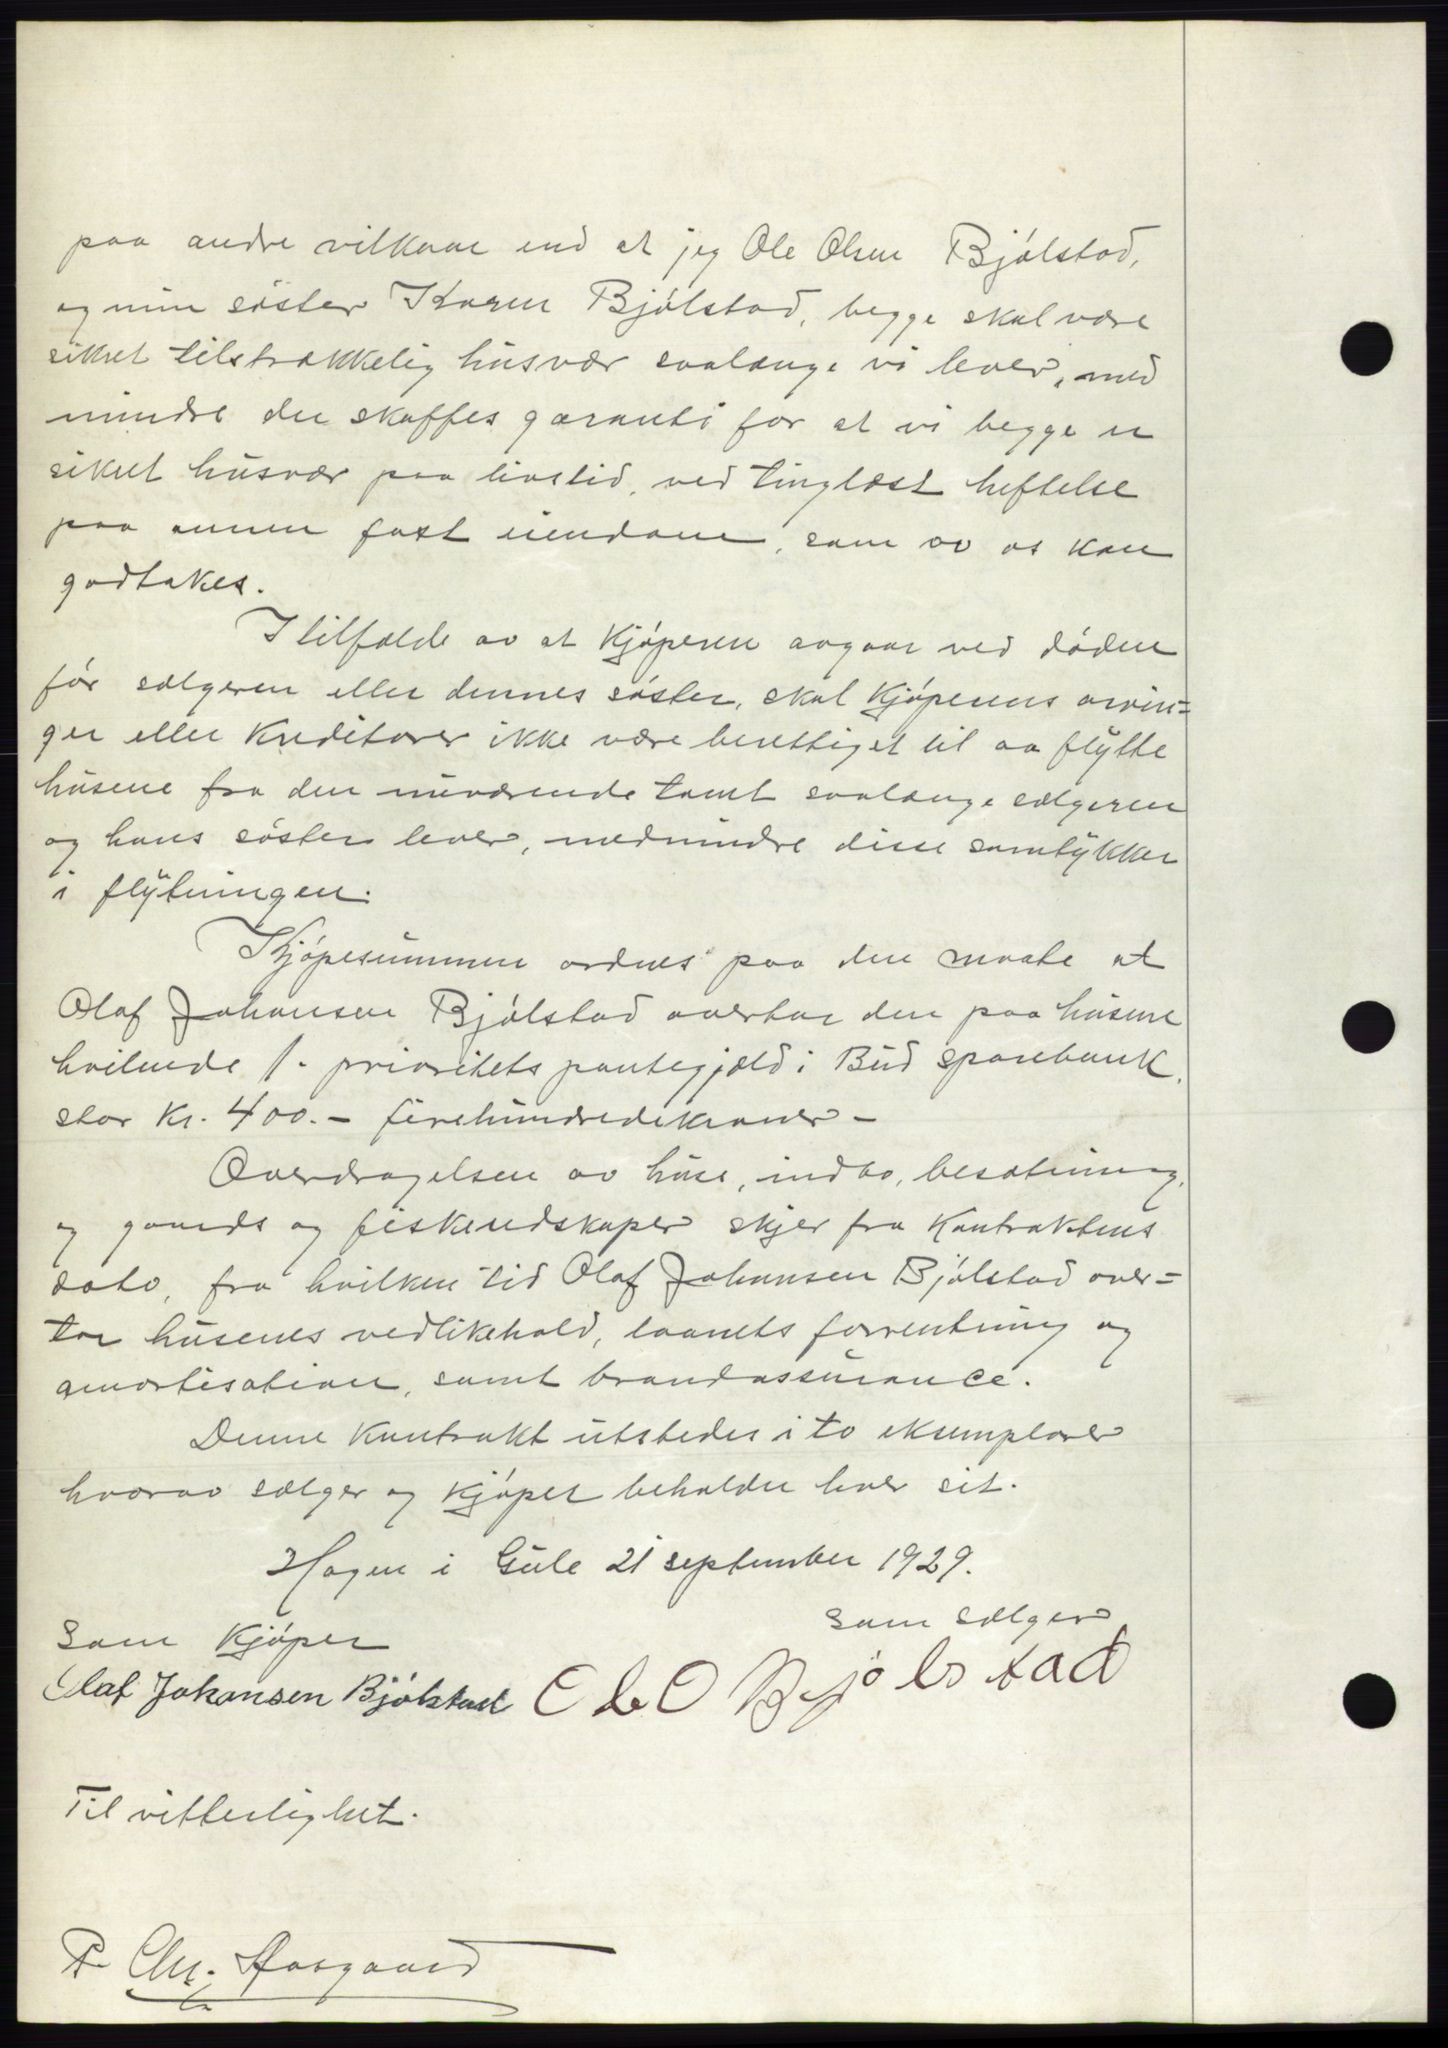 paa andre vilkaar end at jeg Ole Olsen Bjølstad,
og min søster Karen Bjølstad, begge skal være
sikret tilstrækkelig husvær saalænge vi lever, med
mindre der skaffes garanti for at vi begge er
sikret husvær paa livstid, ved tinglæst heftelse
paa annen fast eiendom, som av os kan
godtakes.
I tilfælde av at kjøperen avgaar ved døden
før sælgeren eller dennes søster, skal kjøperens arvin=
ger eller kreditorer ikke være berettiget til aa flytte
husene fra den nuværende tomt saalænge sælgeren
og hans søster lever, medmindre disse samtykker
i flytningen.
Kjøpesummen ordnes paa den maate at
Olaf Johansen Bjølstad overtar den paa husene
hvilende 1. prioritets pantegjæld i Bud sparebank,
stor kr. 400.- firehundredekroner -
Overdragelsen av huse, indbo, besætning,
og gaards og fiskeredskaper skjer fra kontraktens
dato, fra hvilken tid Olaf Johansen Bjølstad over=
tar husenes vedlikehold, laanets forrentning og
amortisation, samt brandassurance.
Denne kontrakt utstedes i to eksemplarer
hvorav sælger og kjøper beholder hver sit.
Hagen i Gule 21 september 1929.
som sælger
Som kjøper
Olaf Johansen Bjølstad Ole O Bjølstad
Til vitterlighet.
P. Chr. Aasgaard